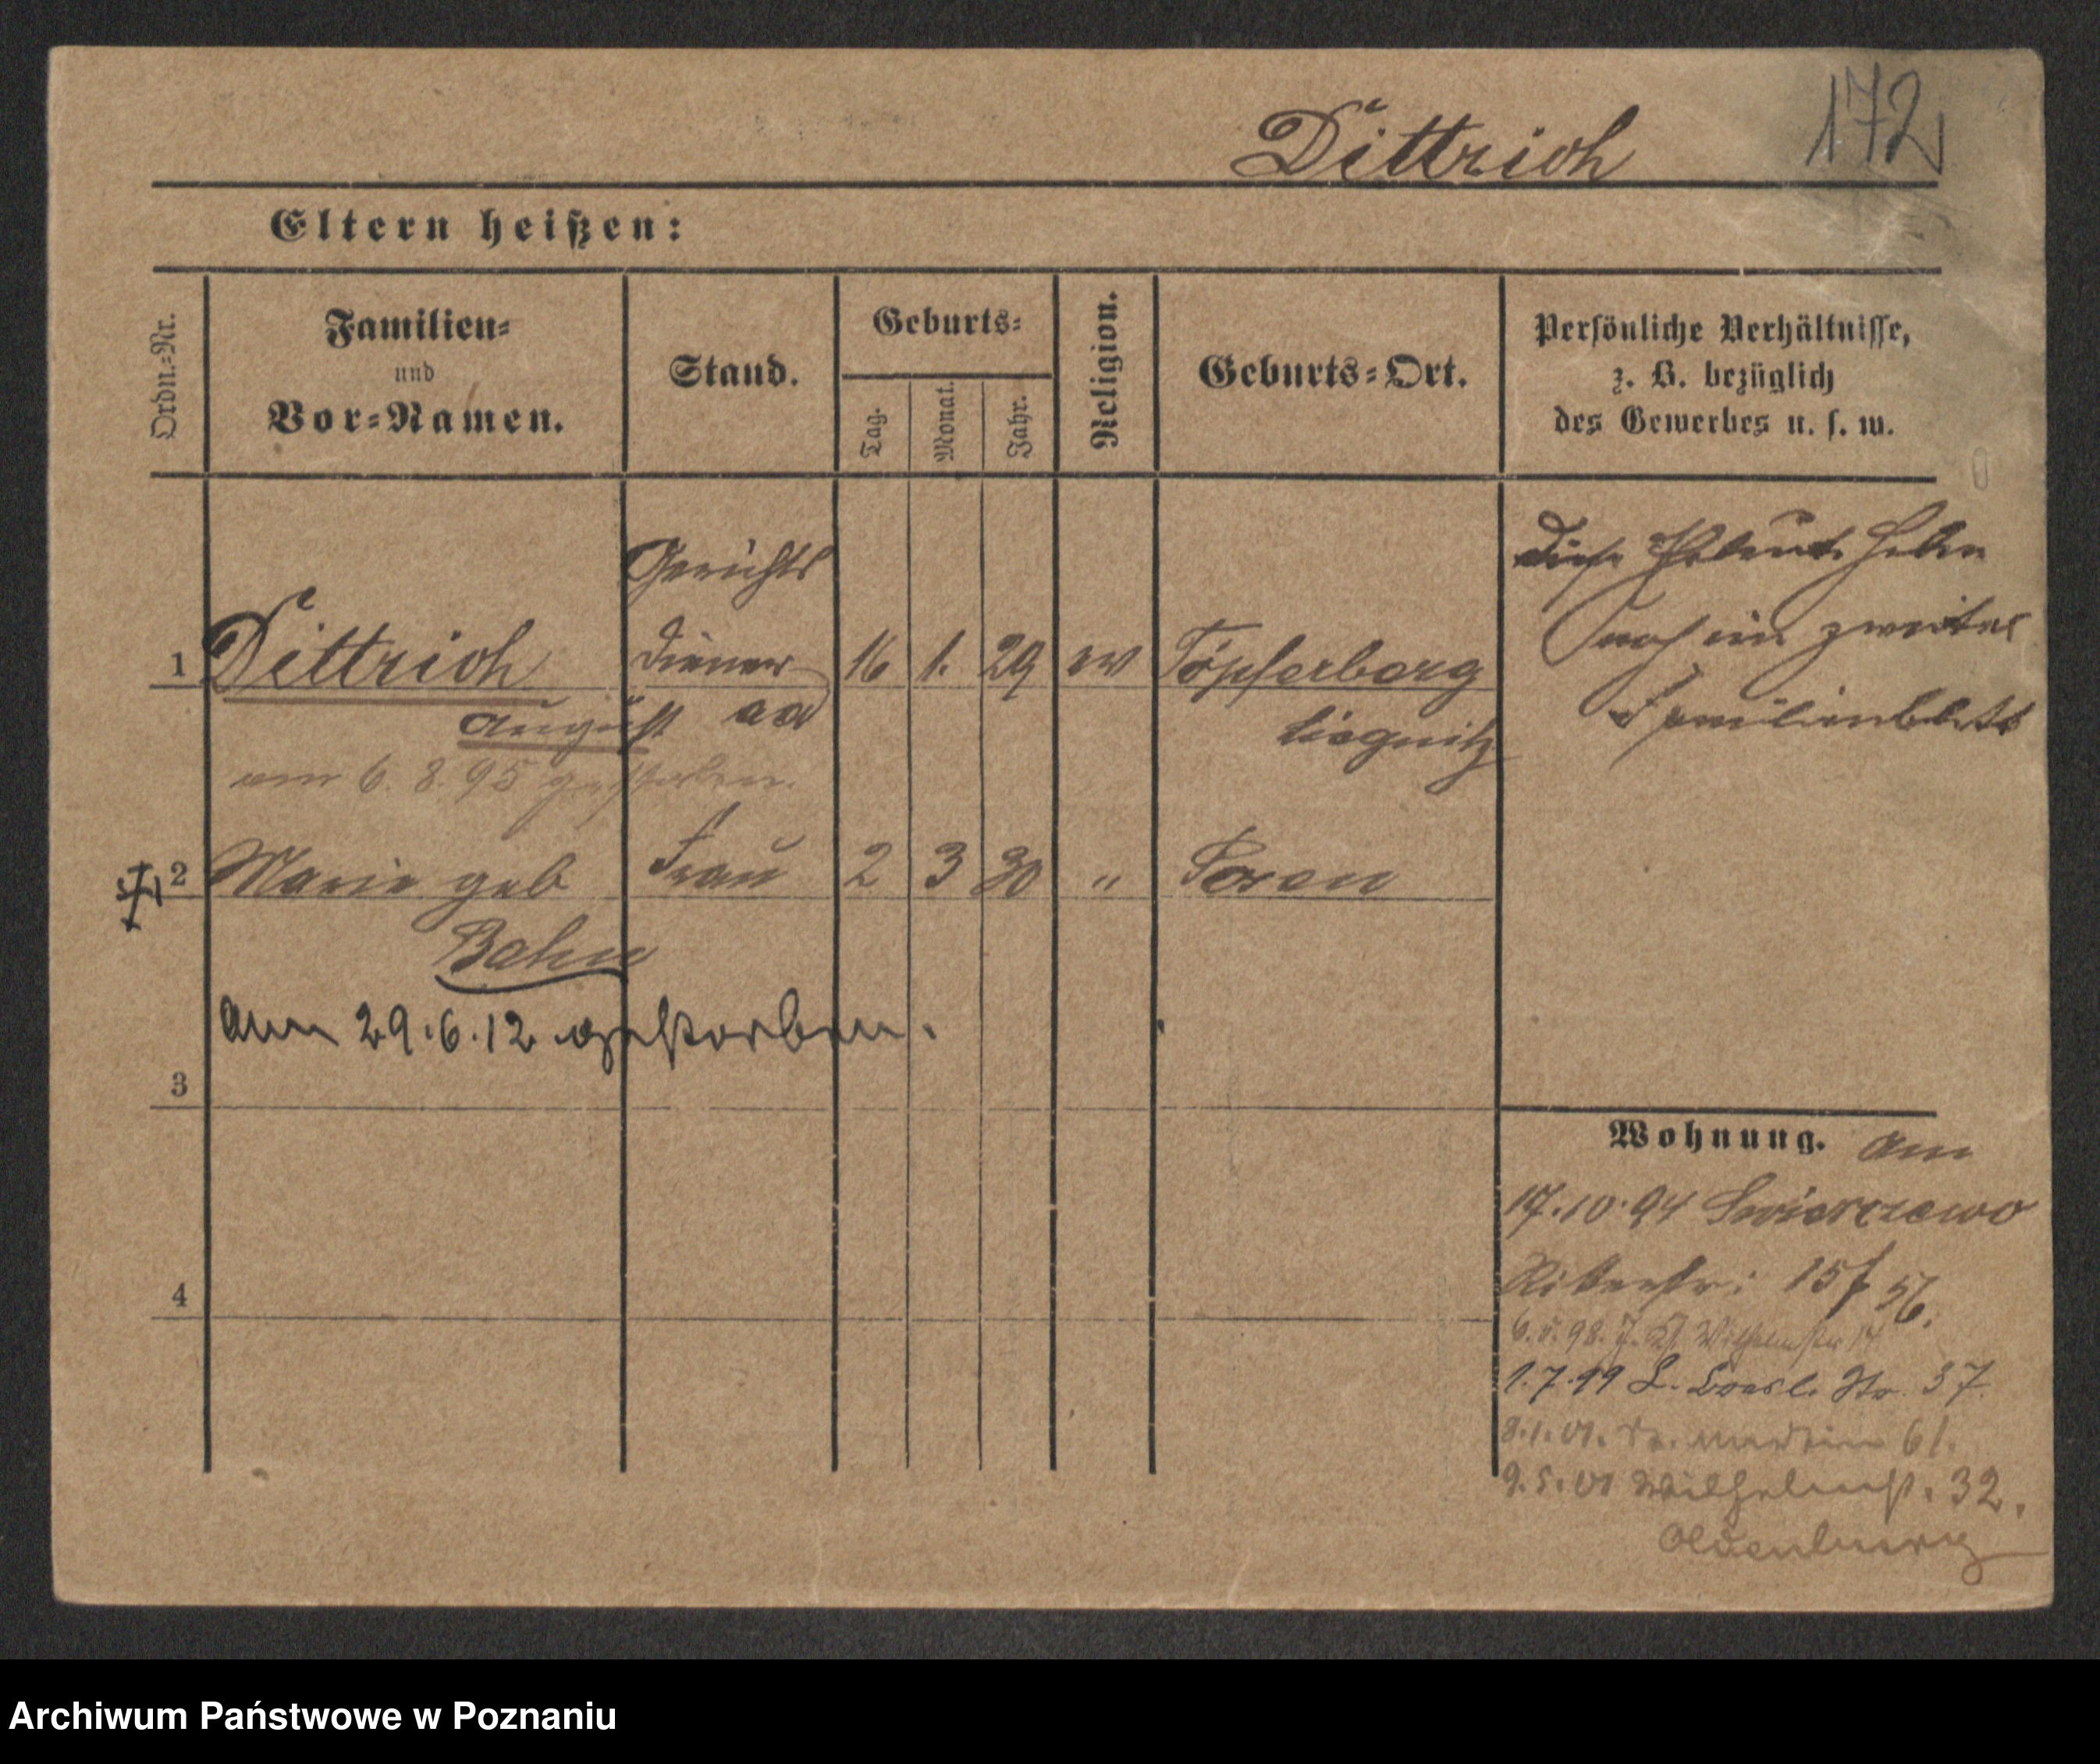 Dittrich 172
Eltern heißen:
Ordn.=Nr.
Familien=
und
Vor=Namen.
Stand.
Geburts=
Tag.
Monat.
Jahr.
Religion.
Geburts=Ort.
Persönliche Verhältnisse,
z. B. bezüglich
des Gewerbes u. s. w.
Gerichts
1 Dittrich diener 16 1. 29 ev Töpferberg
August ad Liegnitz
am 6. 8. 95 gestorben.
diese Eheleute haben
noch ein zweites
Familienblatt
2 Marie geb Frau 2 3 30 " Posen
Bahn
am 29.6.12 gestorben.
3
4
Wohnung. am
17.10.94 Swierczewo
Ritterstr: 15
98. Wilhelmstr 17
1.7.99 L. Str. 37.
8.1.01. St. Martin 61.
9.5.01 Wilhelmst. 32.
Oldenburg
Archiwum Państwowe w Poznaniu